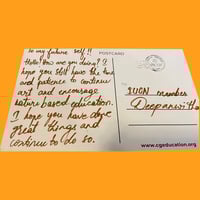 To my future self!!
POSTCARD
Hello! How are you doing? I
hope you still have the time
and patience to continue
art and encourage
nature based education.
I hope you have done
great things and
continue to do so.
IUCN member
Deepanwita
www.cgeducation.org